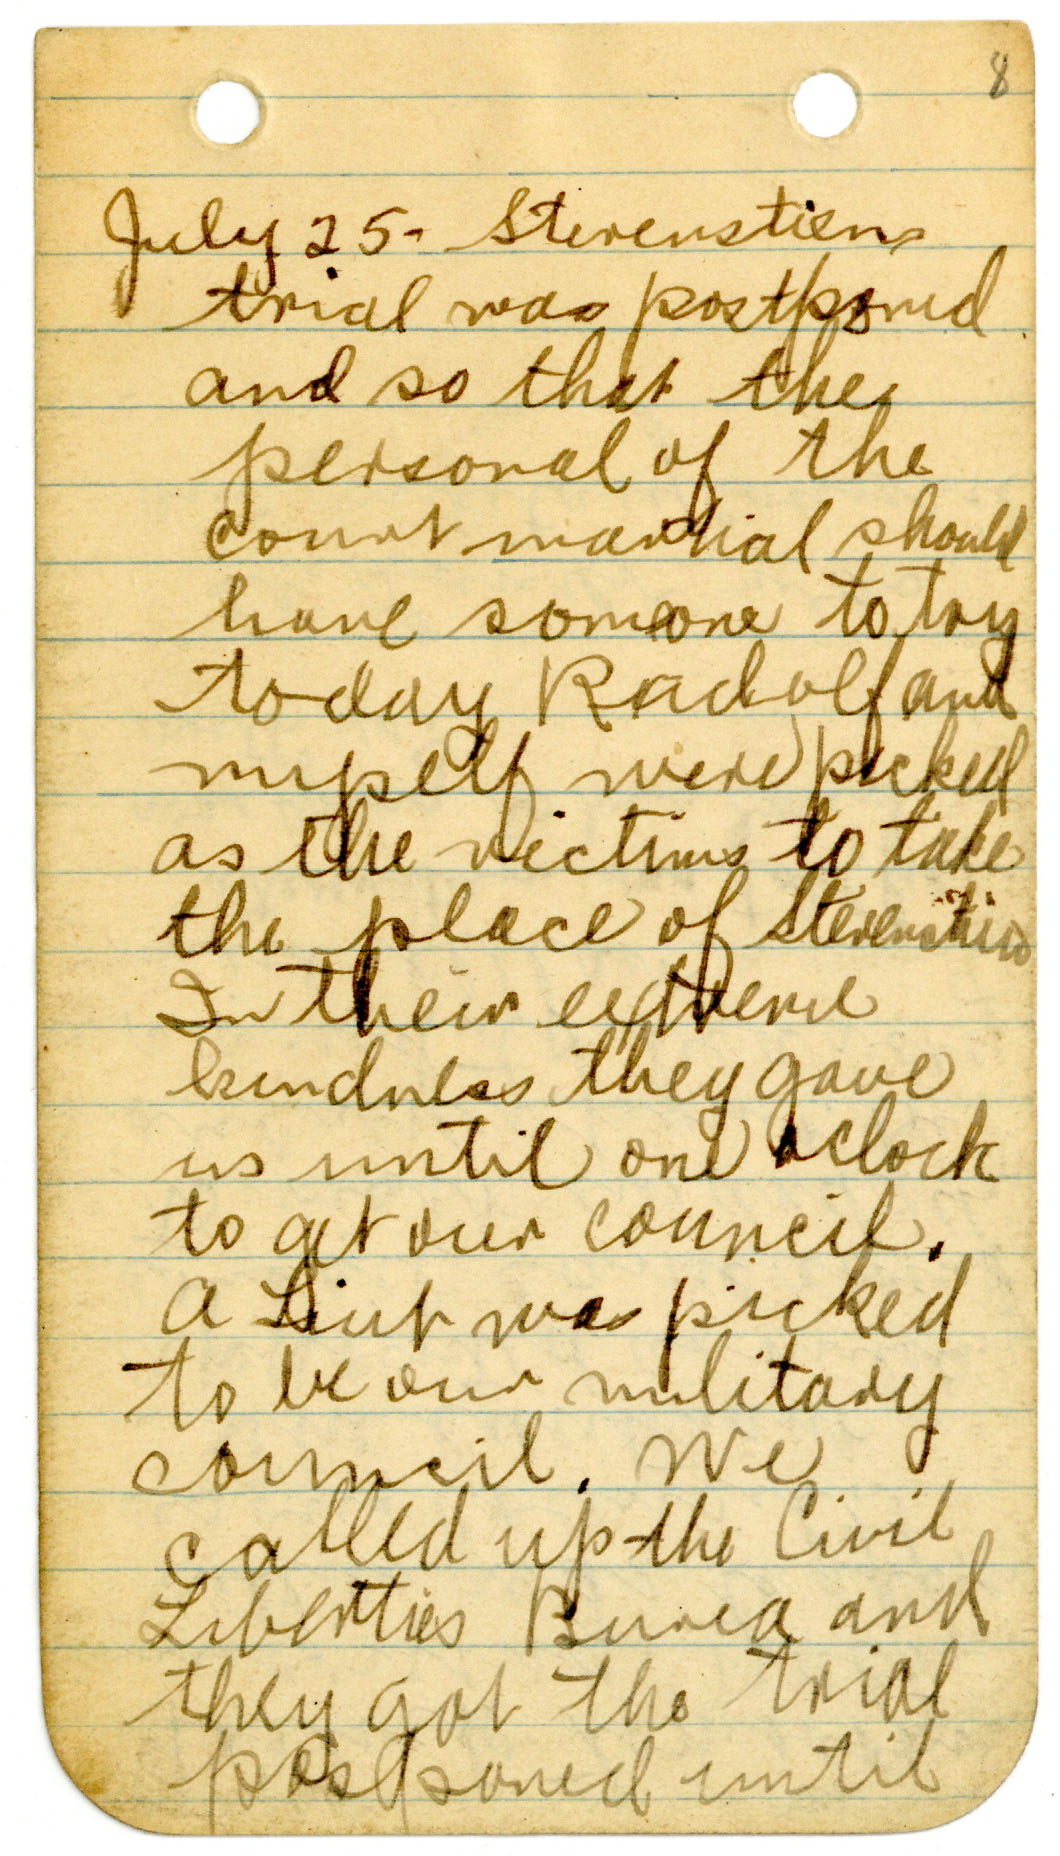 8
July 25- Sterenstien
trial was postponed
and so that the
personal of the
court martial should
have someone to try
today Radolf and
myself were picked
as the victims to take
the place of Sterenstien
In their extreme
kindness they gave
us until one oclock
to get our council.
A Liut was picked
to be our military
council. We
called up the Civil
Liberties Burea and
they got the trial
postponed until